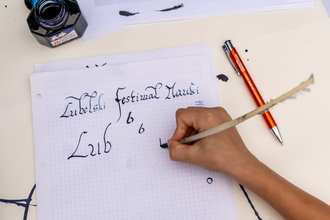 Lubelski Festiwal Nauki
b
Lub b